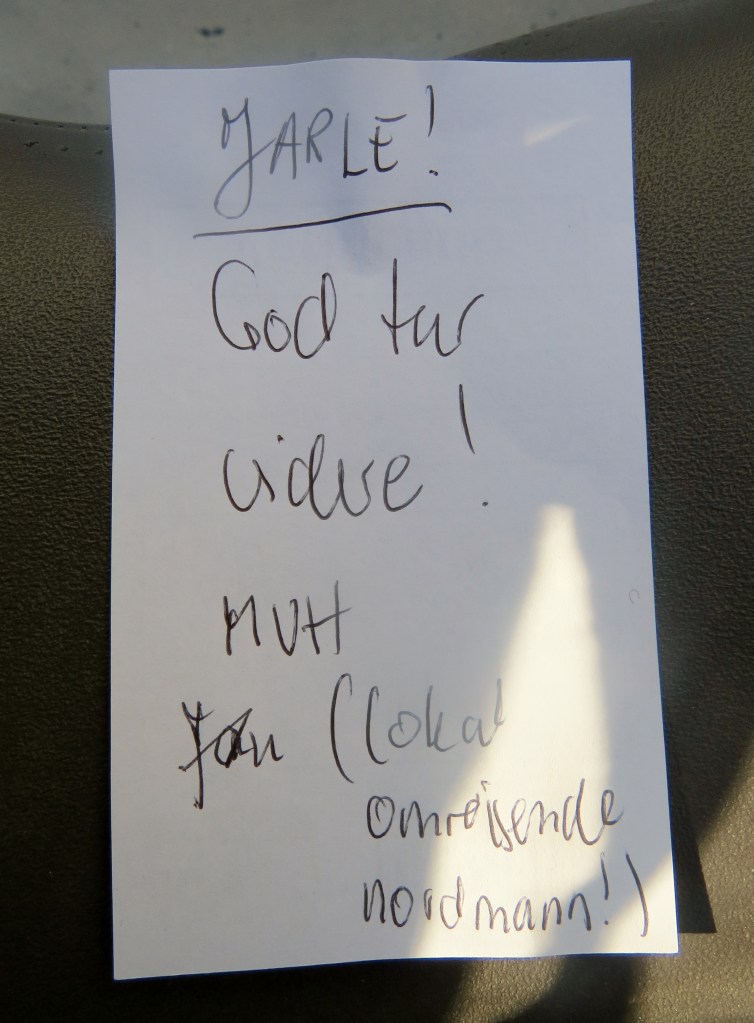 JARLE!
God tur
videre!
MVH
Jan (lokal
omreisende
nordmann!)